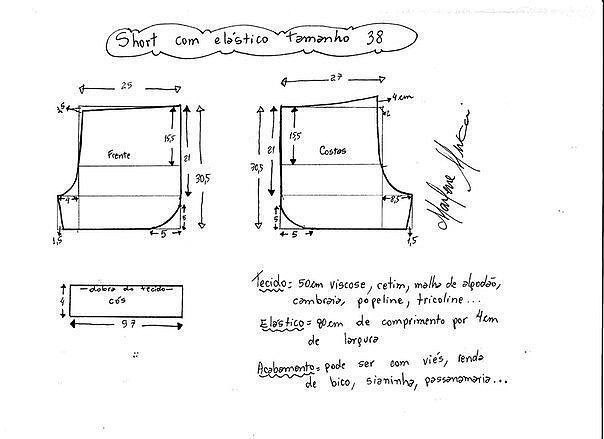 Short com elástico tamanho 38
25
27
4 cm
2
15,5
15,5
21
21
Frente
Costas
30,5
30,5
4
8,5
5
5
1,5
5
5
1,5
dobra do tecido
cós
4
97
Tecido= 50cm viscose, cetim, malha de algodão,
cambraia, popeline, tricoline...
Elástico= 80cm de comprimento por 4cm
de largura
Acabamento= pode ser com viés, renda
de bico, sianinha, passanamaria...